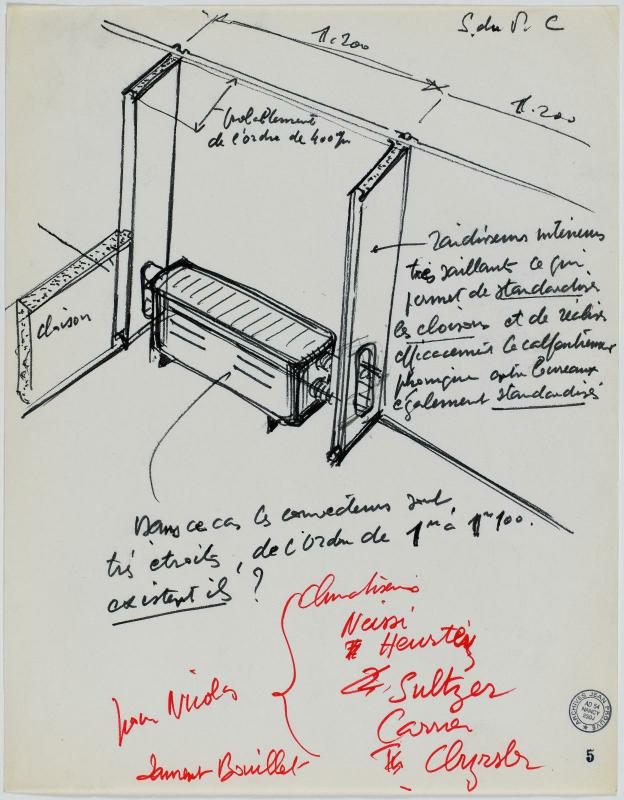 S. du P. C
1.200
1.200
probablement
de l'ordre de 400 m
cloison
raidisseurs intérieurs
très saillant ce qui
permet de standardiser
les cloisons et de réaliser
efficacement le calfeutrement
phonique entre bureaux
également standardisés
Dans ce cas les convecteurs sont
très étroits, de l'ordre de 1m à 1m100.
existent ils ?
Climatiseurs
Jean Nicolas
Laurent Bouillet
Sultzer
Carrier
Chrysler
ARCHIVES JEAN PROUVÉ
AD 54
NANCY
230J
5